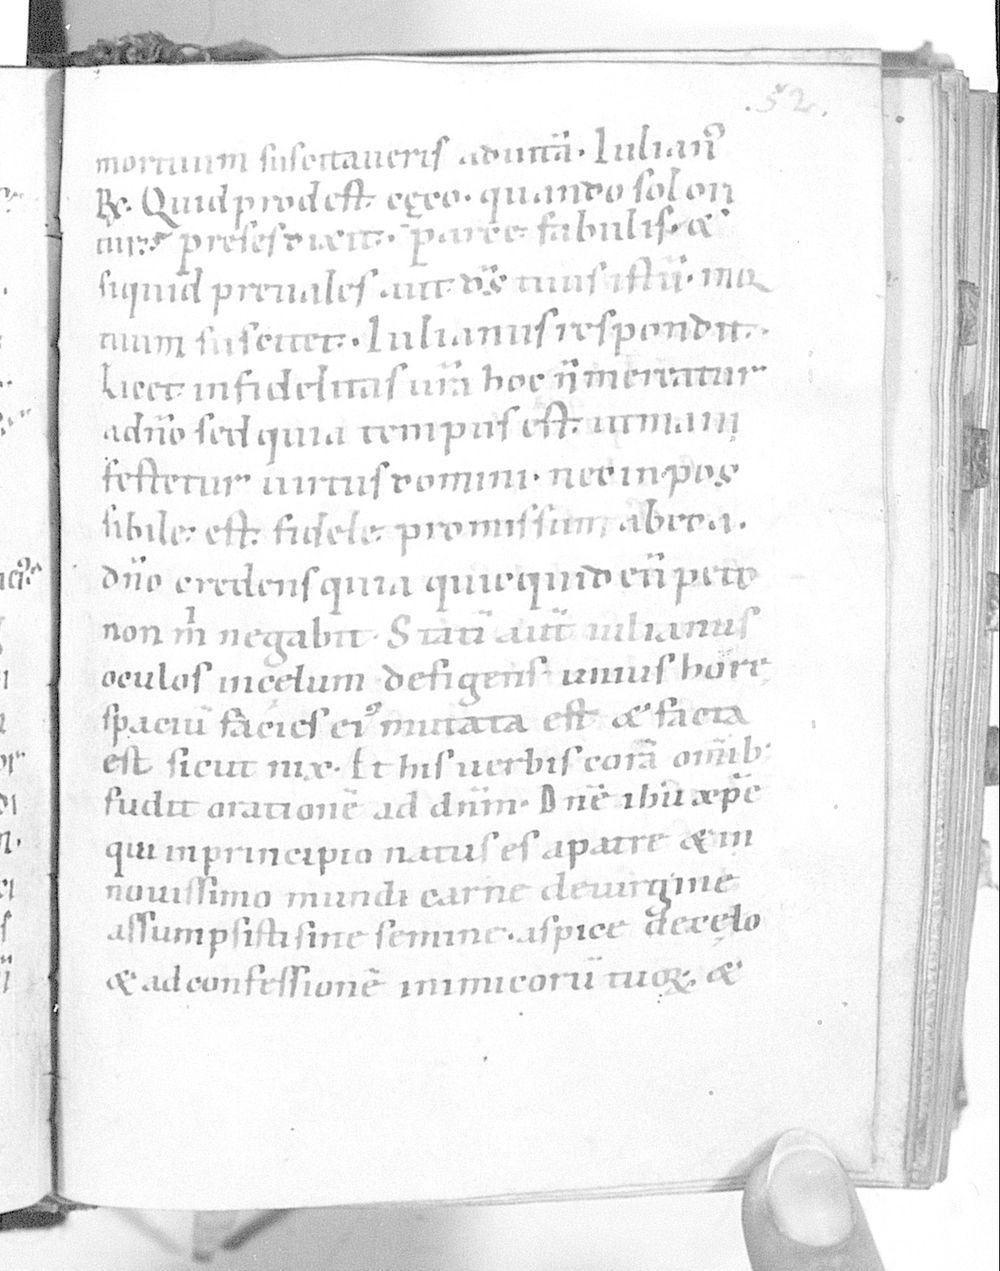 .52.
mortuum suscitaueris aduitā. Iulian᾽
R͞x. Quid prodest cęco. quando sol ori
tur; preses dixit. parce fabulis. &
siquid preuales aut d̄s tuus istū. mor
tuum suscitet. Iulianus respondit.
Licet infidelitas ur̄a hoc n̄ mereatur
adn̄o sed quia tempus est. utmani
festetur uirtus domini. nec in pos
sibile. est. fidele promissum abeo a.
dn̄o credens quia quicquid eū peto
non m̄ negabit. Statī aūt iulianus
oculos incelum defigens. unius horę
spaciū facies ei᾽ mutata est & facta
est sicut nix. Et his uerbis corā omīb;
fudit orationē ad dn̄m. Dn̄e ihū xp̄e
qui inprincipio natus es apatre & in
nouissimo mundi carne deuirgine
assumpsisti sine semine. aspice decęlo
& adconfessionē inimicorū tuoꝝ. &